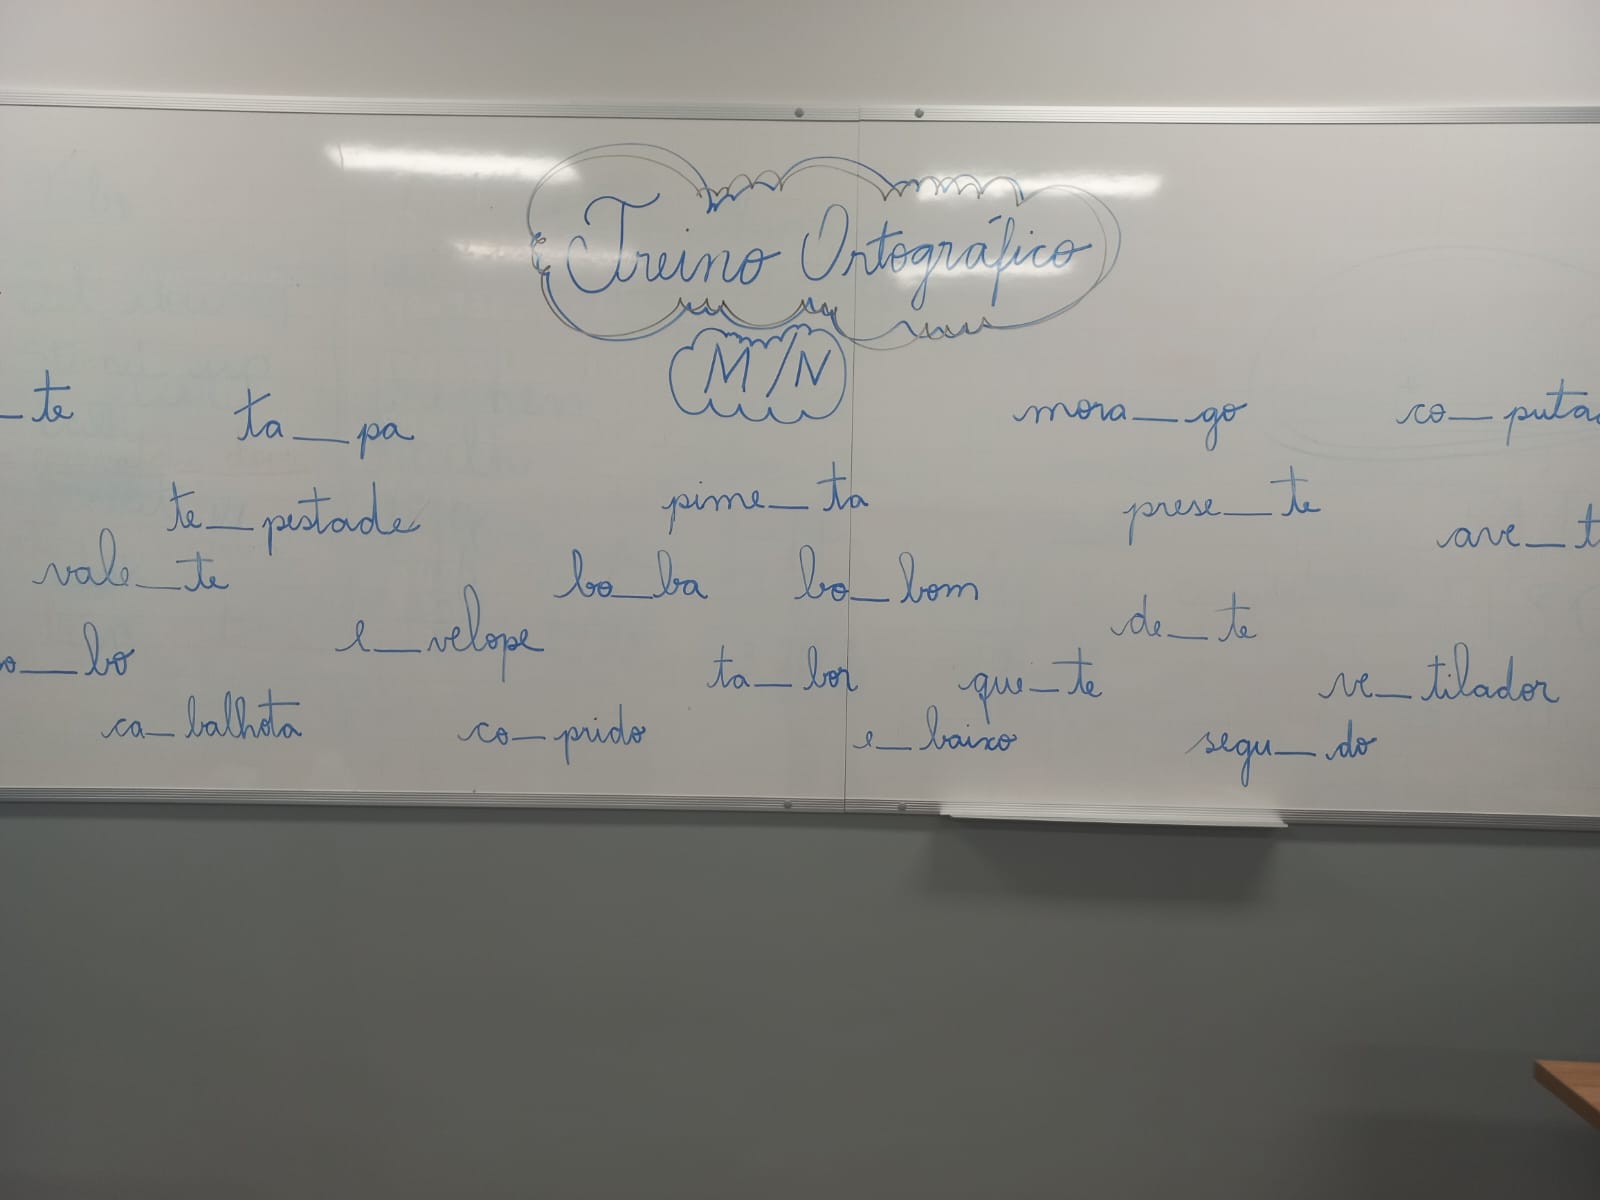 Treino Ortográfico
M/N
_te ta_pa mora_go co_puta
te_pestade pime_ta prese_te ave_t
vale_te bo_ba bo_bom de_te
o_bo e_velope ta_bor que_te ve_tilador
ca_balhota co_prido e_baixo segu_do